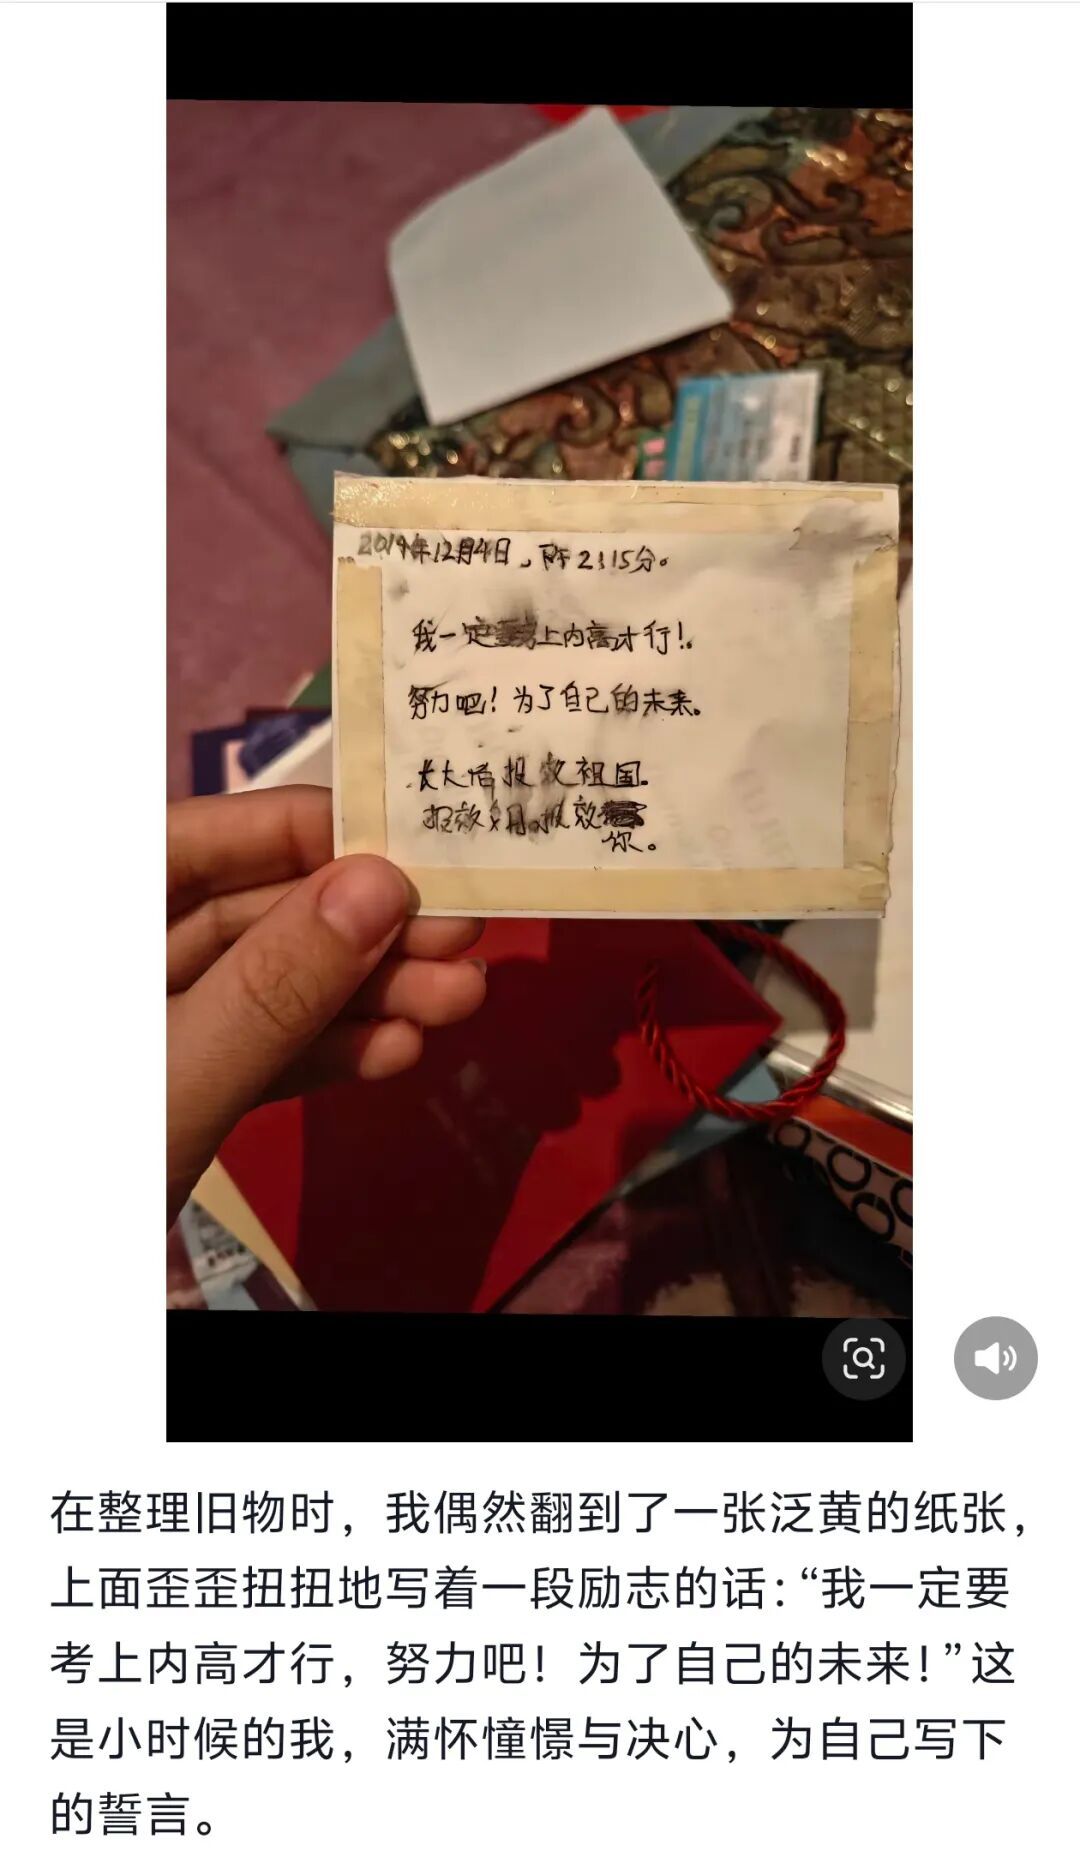 2019年12月4日，下午2:15分。
我一定要考上内高才行！
努力吧！为了自己的未来。
长大后报效祖国。
报效父母。报效
你。
在整理旧物时，我偶然翻到了一张泛黄的纸张，
上面歪歪扭扭地写着一段励志的话：“我一定要
考上内高才行，努力吧！为了自己的未来！”这
是小时候的我，满怀憧憬与决心，为自己写下
的誓言。